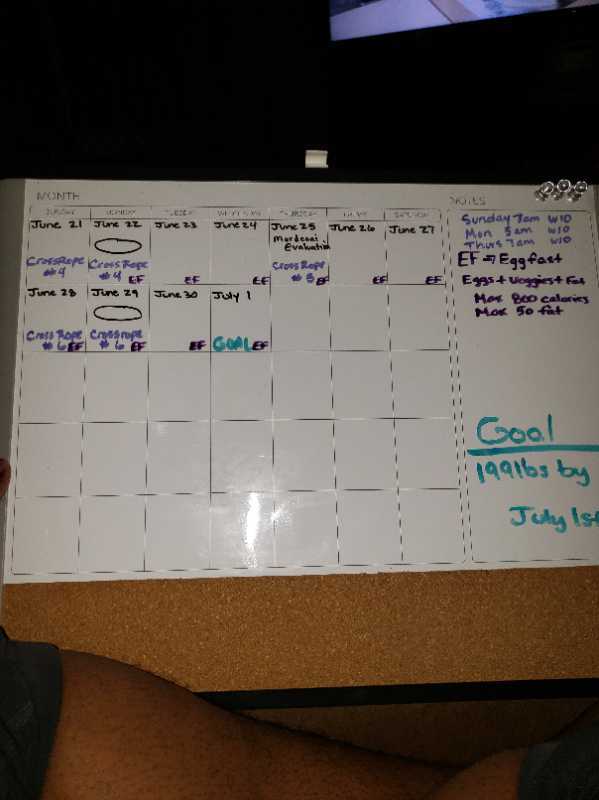 MONTH
SUNDAY MONDAY TUESDAY WEDNESDAY THURSDAY FRIDAY SATURDAY
June 21 June 22 June 23 June 24 June 25 June 26 June 27
Mordecai
Evaluation
CrossRope CrossRope CrossRope
#4 #4 EF EF EF #5 EF EF EF
June 28 June 29 June 30 July 1
Cross Rope Crossrope
#6 EF #6 EF EF GOAL EF
NOTES
Sunday 7am W/O
Mon 5am W/O
Thus 7am W/O
EF → Egg fast
Eggs + Veggies + Fat
Max 800 calories
Max 50 fat
Goal
199 lbs by
July 1st